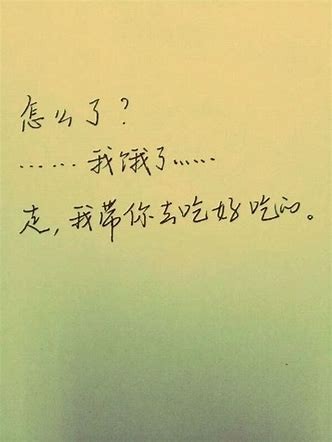 怎么了?
……我饿了……
走,我带你去吃好吃的。